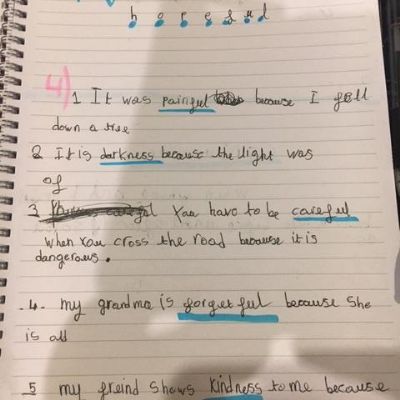 h o p e f u l
4)
1 It was painful because I fell
down a tree
2 It is darkness because the light was
of
3 You have to be careful
when you cross the road because it is
dangerous.
4. my grandma is forgetful because she
is old
5 my freind shows kindness to me because